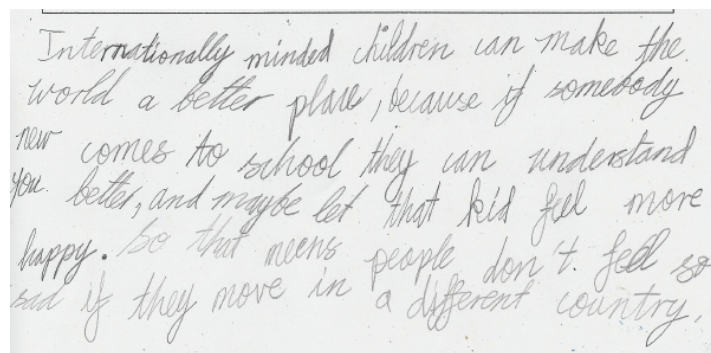 Internationally minded children can make the
world a better place, because if somebody
new comes to school they can understand
you. better, and maybe let that kid feel more
happy. So that means people don't. feel so
sad if they move in a different country.